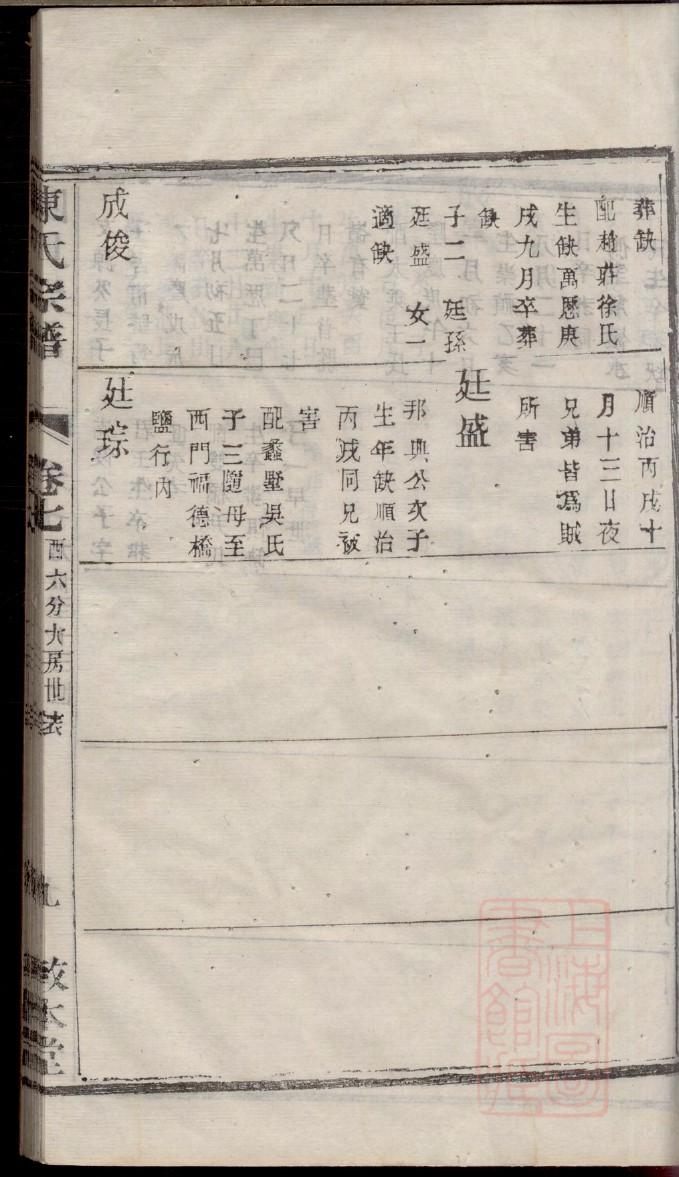 葬缺
配趙莊徐氏
生缺萬曆庚
戌九月卒葬
缺
子二 廷孫
廷盛 女一
適缺
成俊
順治丙戌十
月十三日夜
兄弟皆爲賊
所害
廷盛
邦興公次子
生年缺順治
丙戌同兄被
害
配蠡墅吳氏
子三隨母至
西門福德橋
鹽行內
廷琮
陳氏宗譜
卷七
酉六分大房世表
九
敦本堂
上海圖書館藏